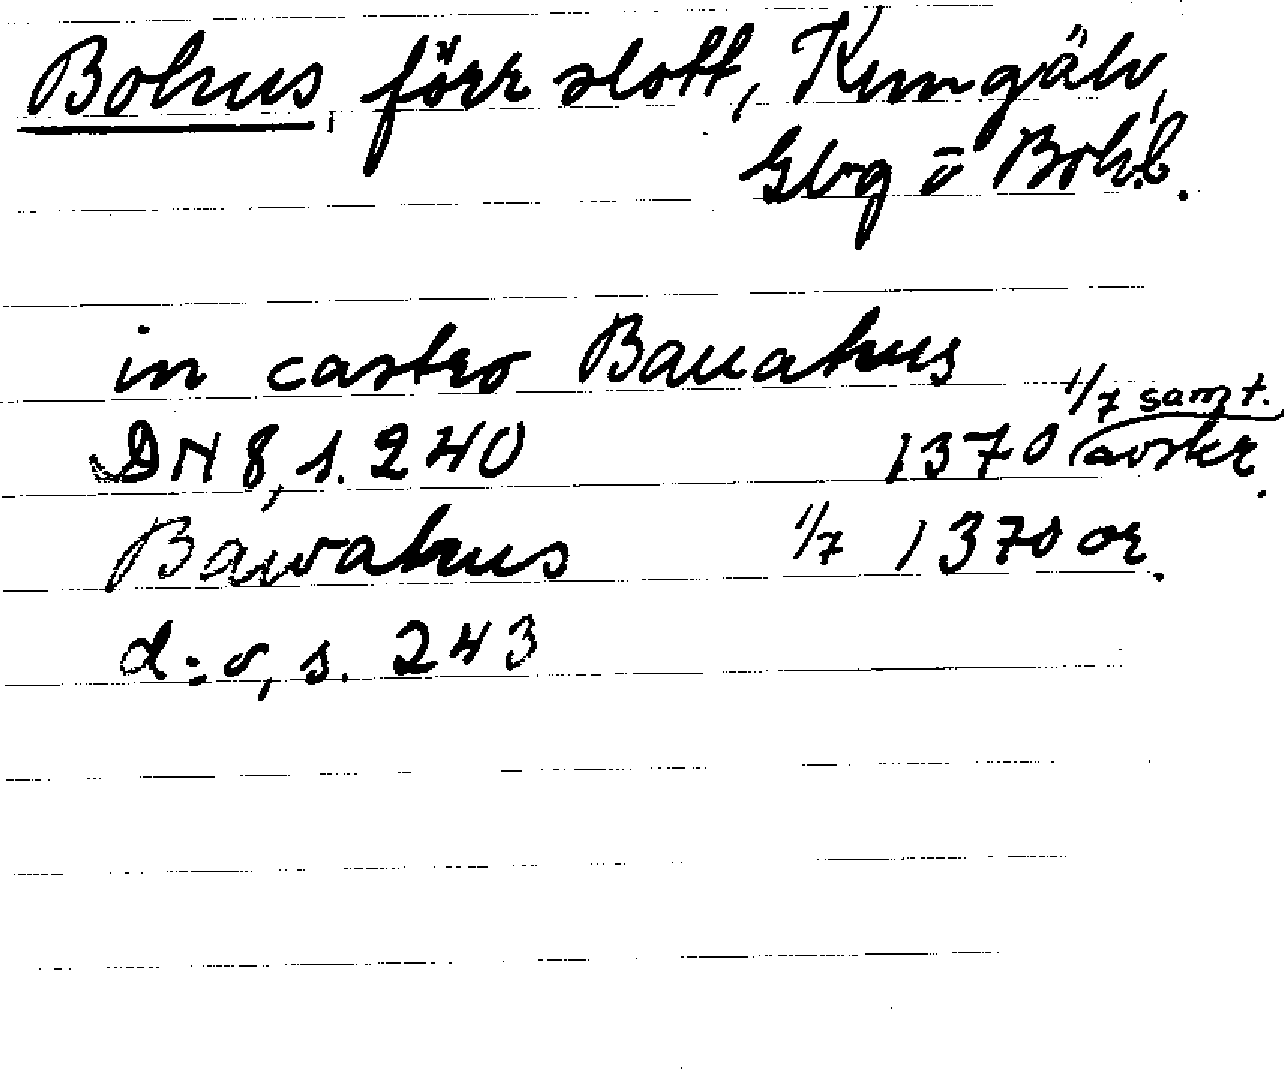 Bohus, förr slott, Kungälv,
Gbg o Bohl.
in castro Bauahus
DN 8, s. 240 1370 1/7 samt. avskr.
Bawahus 1/7 1370 or.
d:o, s. 243